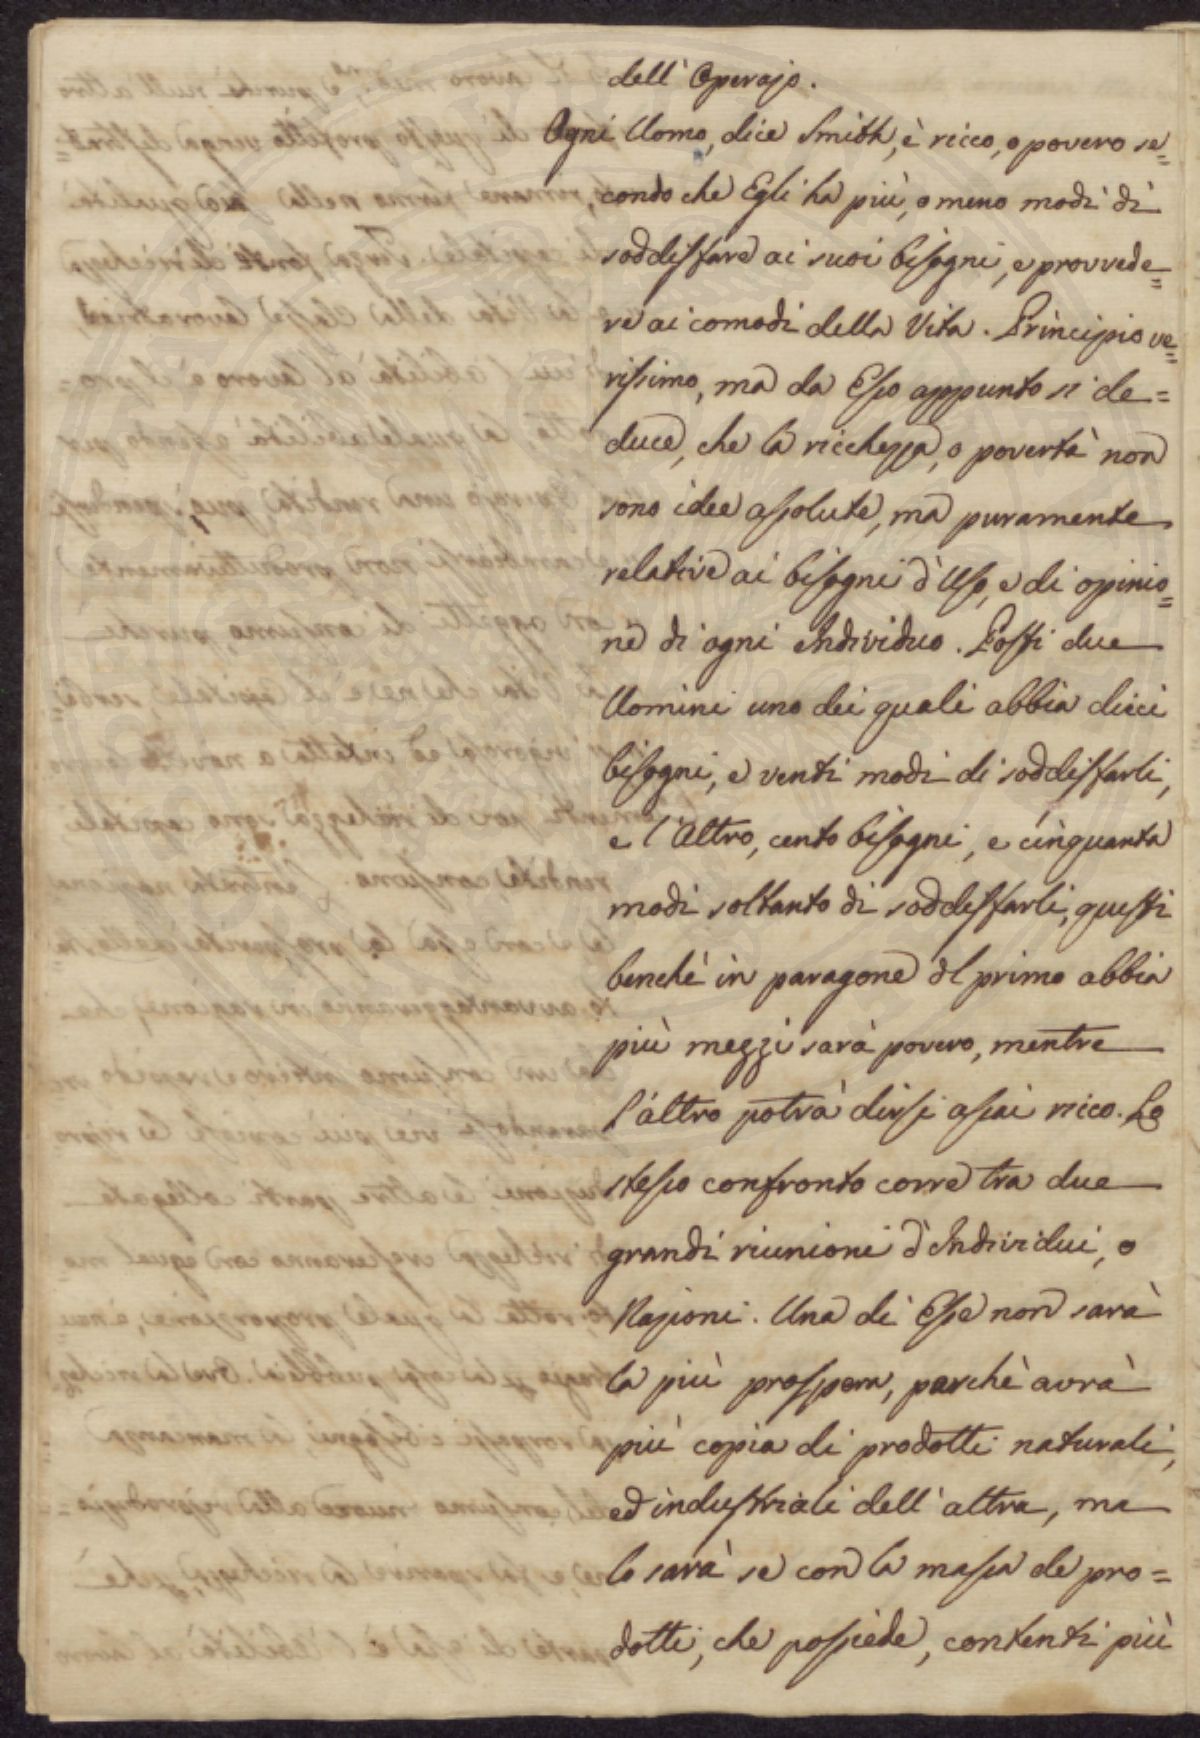 dell' Operajo.
Ogni Uomo, dice Smith, è ricco, o povero se=
condo che Egli ha più, o meno modi di
soddisfare ai suoi bisogni, e provvede=
re ai comodi della Vita. Principio ve=
rissimo, ma da Esso appunto si de=
duce, che la ricchezza, o povertà non
sono idee assolute, ma puramente
relative ai bisogni d'Uso, e di opinio=
ne di ogni Individuo. Possi due
Uomini uno dei quali abbia dieci
bisogni, e venti modi di soddisfarli,
e l'Altro, cento bisogni, e cinquanta
modi soltanto di soddisfarli, questi
benchè in paragone del primo abbia
più mezzi sarà povero, mentre
l'altro potrà dirsi assai ricco. Lo
stesso confronto corre tra due
grandi riunioni d'Individui, o
Nazioni. Una di Esse non sarà
la più prospera, perchè avrà
più copia di prodotti naturali,
ed industriali dell'altra, ma
lo sarà se con la massa de pro=
dotti, che possiede, contenti più